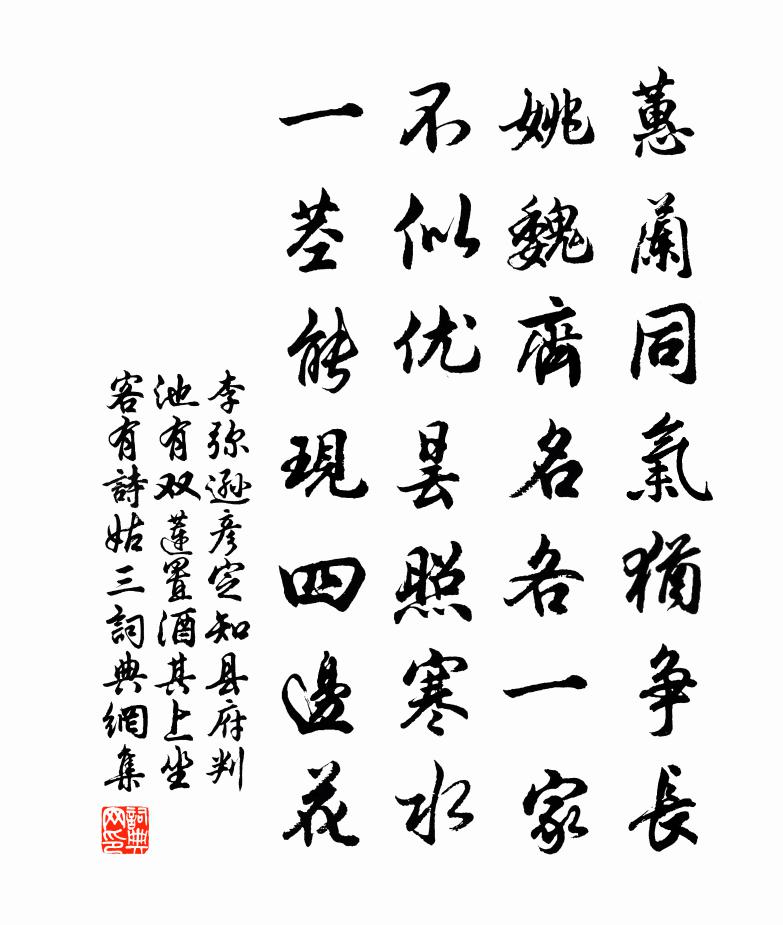 蕙蘭同氣猶争長
姚魏齊名各一家
不似优昙照寒水
一茎能現四邊花
李弥遜彦定知县府判
池有双蓮置酒其上坐
客有詩姑三詞典網集
詞典
网印